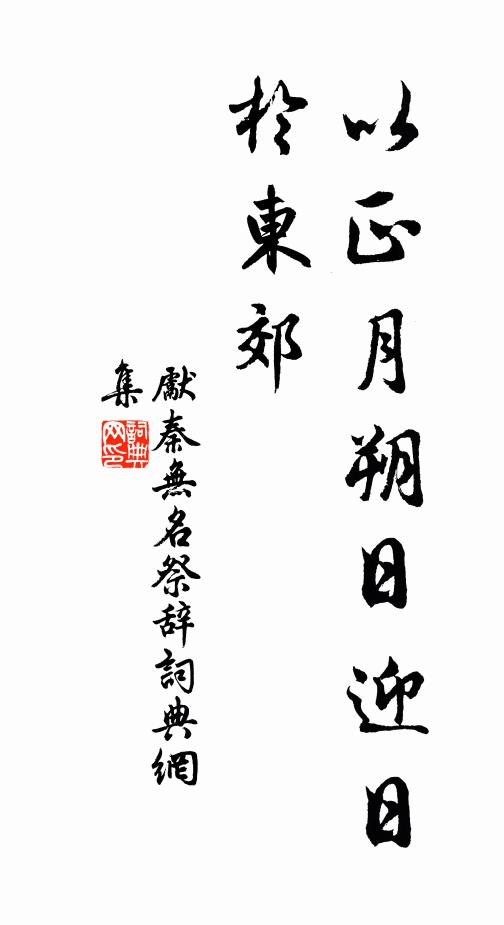 以正月朔日迎日
於東郊
獻秦無名祭辞詞典網
集
詞典
网印